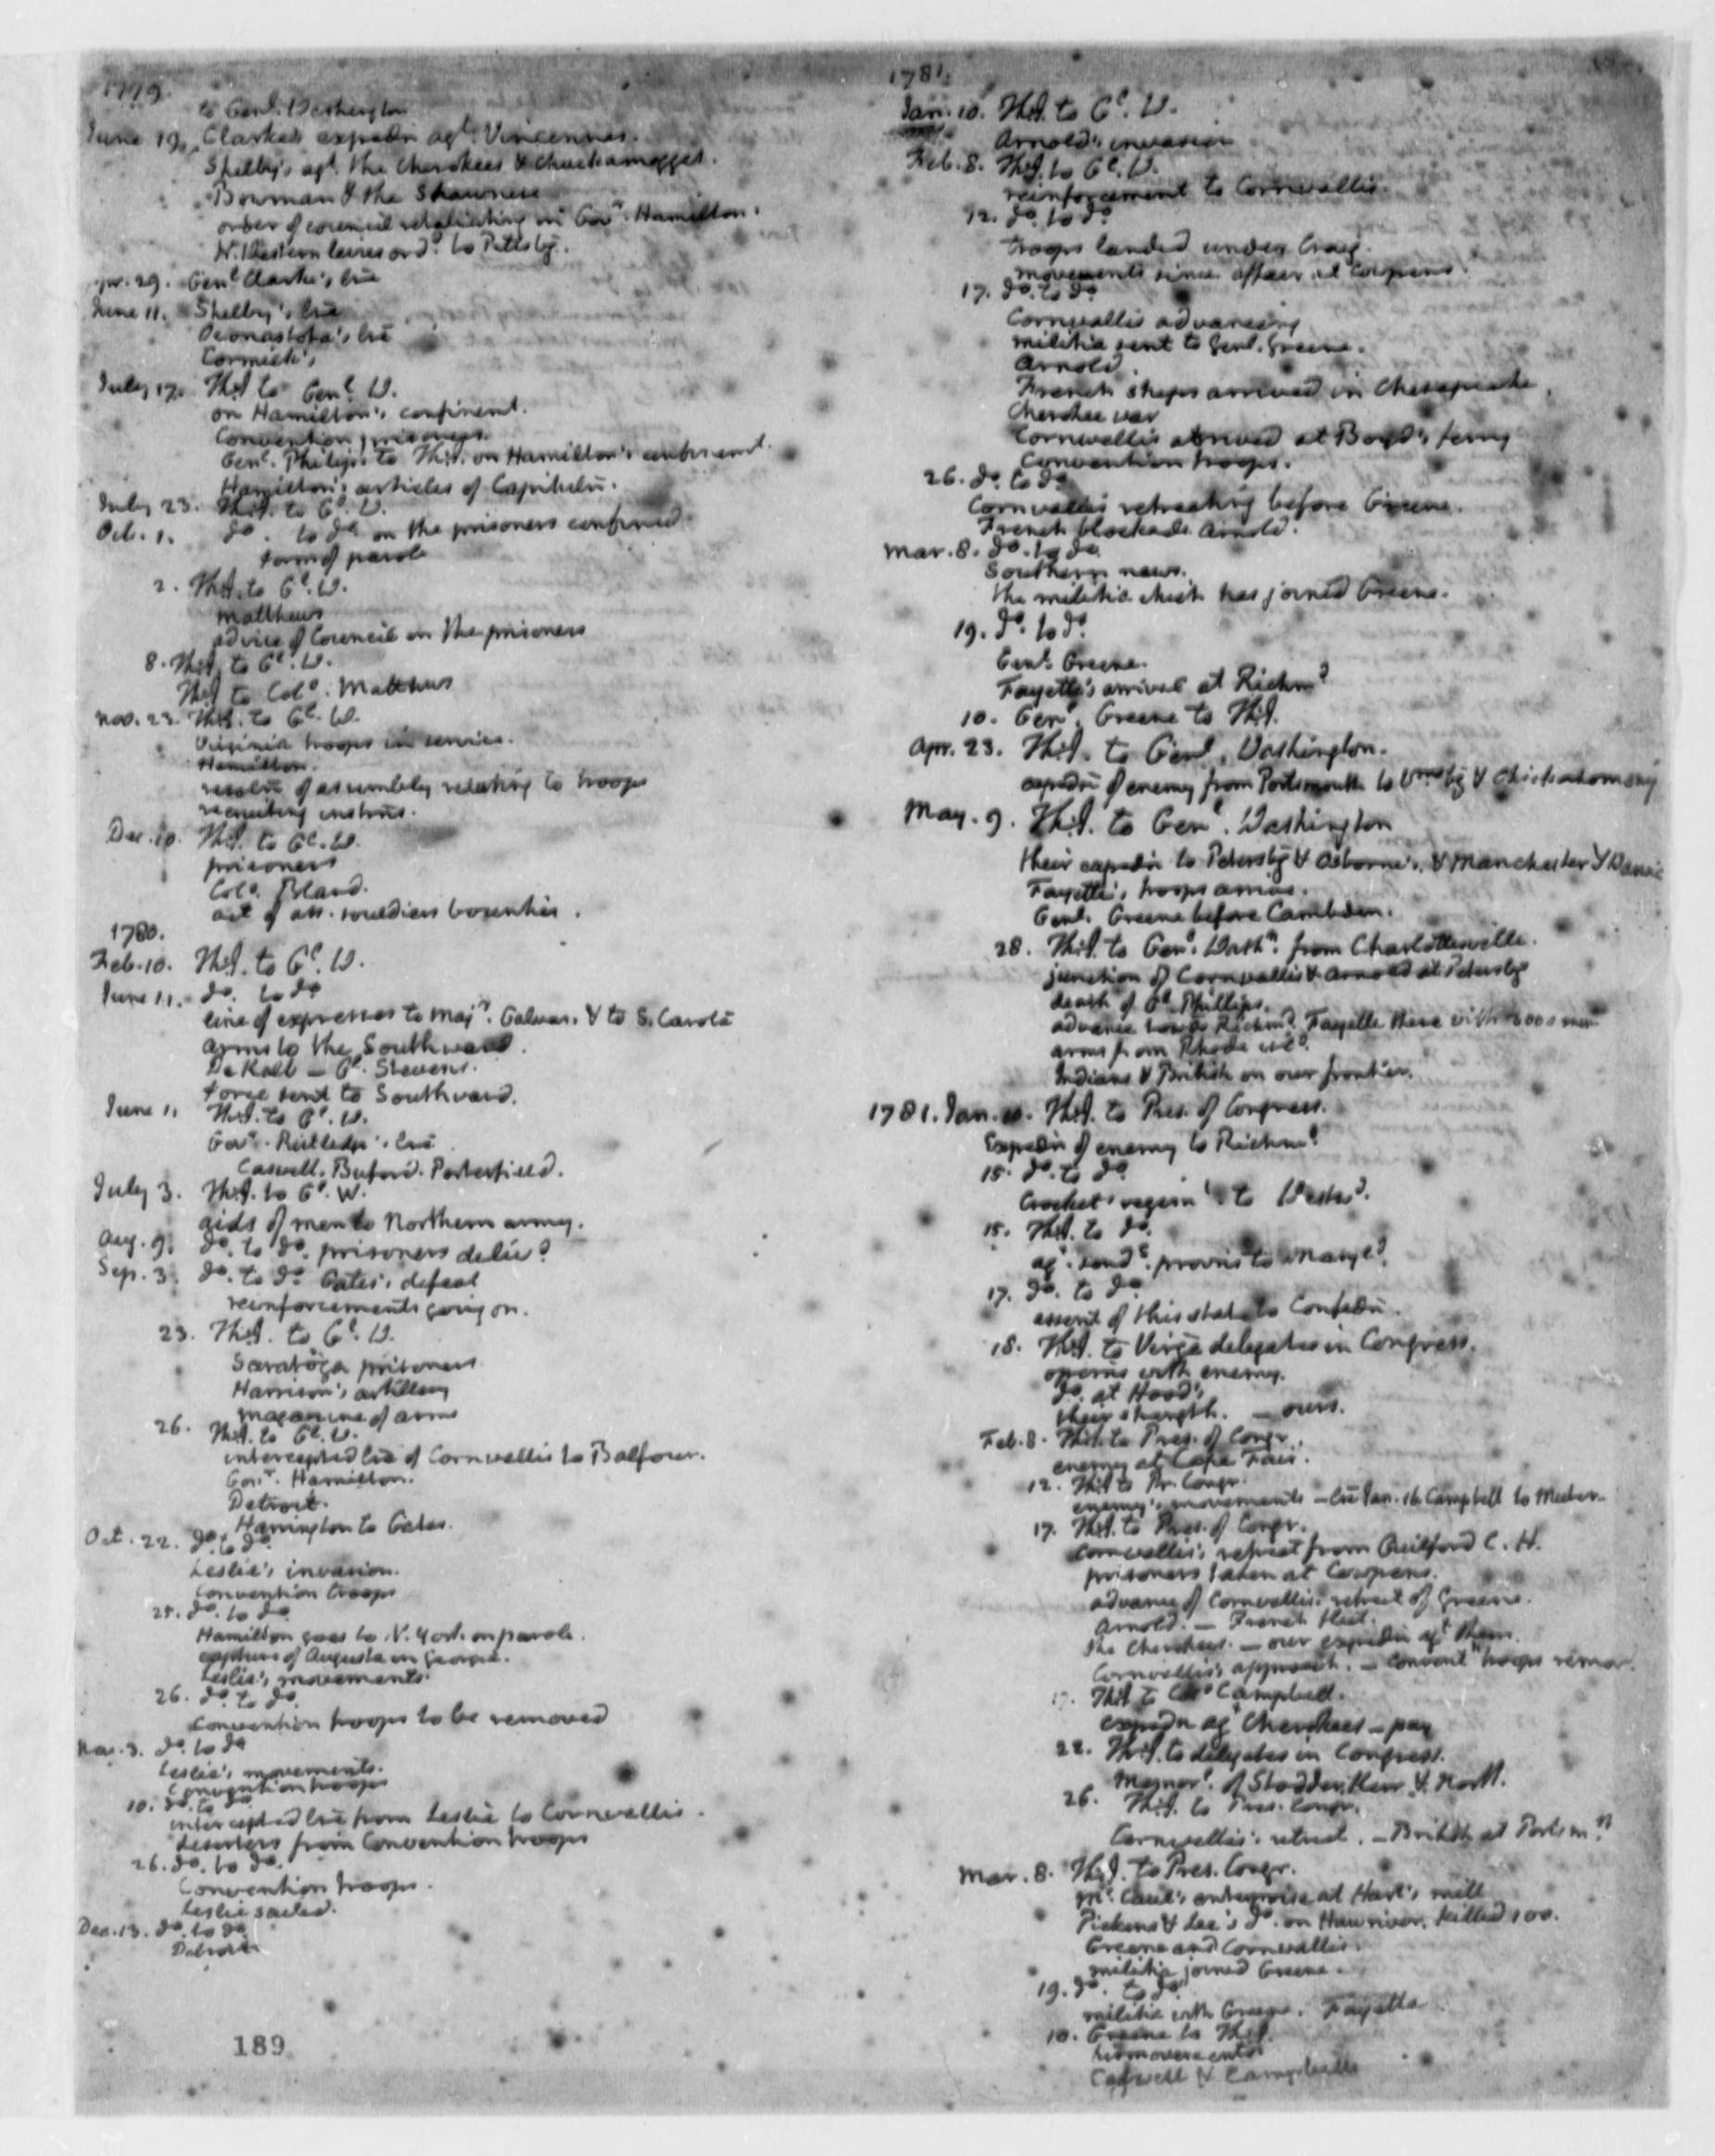 1779.
to Genl. Washington
June 19. Clarke's expedn agt. Vincennes.
Shelby's agt. the Cherokees & Chuckamoggas.
Bowman & the Shawnese
order of council retaliating on Govr. Hamilton.
N. Western levies ord. to Pittsbg.
apr. 29. Genl Clarke's lre
June 11. Shelby's lre
Oconastota's lre
Cormick's
July 17. Th:J to Genl. W.
on Hamilton's confinemt.
Convention prisoners.
Genl. Philips to Th:J. on Hamilton's confinement.
Hamilton's articles of Capituln.
July 23. Th:J. to Gl. W.
Oct. 1. do. to do. on the prisoners confined
form of parole
2. Th:J. to Gl. W.
Matthews
advice of Council on the prisoners
8. Th:J. to Gl. W.
Th:J to Colo. Matthews
Nov. 23. Th:J. to Gl. W.
Virginia troops in service.
Hamilton.
resoln of assembly relating to troops
recruiting instrns.
Dec. 10. Th:J. to Gl. W.
prisoners
Colo. Bland.
act of ass. souldiers bounties.
1780.
Feb. 10. Th:J. to Gl. W.
June 11. do. to do
line of expresses to Majr. Galvan. & to S. Carola
arms to the Southward.
De Kalb — Gl. Stevens.
force sent to Southward.
June 1. Th:J. to Gl. W.
Govr. Rutledge's lre
Caswell. Buford. Porterfield.
July 3. Th:J. to Gl. W.
aids of men to Northern army.
Aug. 9. do. to do. prisoners delivd
Sep. 3. do. to do. Gates's defeat
reinforcements going on.
23. Th:J. to Gl. W.
Saratoga prisoners
Harrison's artillery
magazine of arms
26. Th:J. to Gl. W.
intercepted lre of Cornwallis to Balfour.
Govr. Hamilton.
Detroit.
Harrington to Gates.
Oct. 22. do. to do.
Leslie's invasion.
Convention troops
25. do. to do.
Hamilton goes to N. York on parole.
capture of Augusta in Georgia.
Leslie's movements.
26. do. to do.
Convention troops to be removed
Nov. 3. do. to do
Leslie's movements.
Convention troops
10. do. to do
intercepted lre from Leslie to Cornwallis.
deserters from Convention troops
26. do. to do.
Convention troops.
Leslie sailed.
Dec. 13. do. to do
Detroit
189
1781.
Jan. 10. Th:J. to Gl. W.
Arnold's invasion
Feb. 8. Th:J. to Gl. W.
reinforcement to Cornwallis.
12. do. to do.
troops landed under Craig.
movements since affair at Cowpens.
17. do. to do
Cornwallis advancing
militia sent to Genl. Greene.
Arnold.
French ships arrived in Chesapeake.
Cherokee war
Cornwallis arrived at Boyd's ferry
Convention troops.
26. do. to do
Cornwallis retreating before Greene.
French blockade Arnold.
Mar. 8. do. to do.
Southern news.
the militia which has joined Greene.
19. do. to do.
Genl. Greene.
Fayette's arrival at Richmd
10. Genl. Greene to Th:J.
Apr. 23. Th:J. to Genl. Washington.
expedn of enemy from Portsmouth to Wmsbg & Chickahominy
May. 9. Th:J. to Genl. Washington
their expedn to Petersbg & Osborne's. & Manchester &
Fayette's troops arrive.
Genl. Greene before Cambden.
28. Th:J. to Genl. Washn. from Charlottesville.
junction of Cornwallis & Arnold at Petersbg
death of Gl. Phillips.
advance towds Richmd. Fayette there with 3000 men
arms from Rhode isld.
Indians & British on our frontier.
1781. Jan. 10. Th:J. to Pres. of Congress.
Expedn of enemy to Richmd.
15. do. to do
Crocket's regimt. to Westwd.
15. Th:J. to do.
agt. sendg. provns to
17. do. to do
assent of this state to Confedn.
18. Th:J. to Virga delegates in Congress.
opern with enemy.
do. at Hood's
their strength. — ours.
Feb. 8. Th:J. to Pres. of Congr.
enemy at Cape Fair.
12. Th:J to Pr. Congr.
enemy's movements — lre Jan. 16. Campbell to
17. Th:J. to Pres. of Congr.
Cornwallis's retreat from Guilford C. H.
prisoners taken at Cowpens.
advance of Cornwallis. retreat of Greene.
Arnold. — French fleet.
the Cherokees. — our expedn agt them.
Cornwallis's approach. — Conventn troops remov.
17. Th:J to Colo Campbell.
expedn agt Cherokees — pay
22. Th:J. to delegates in Congress.
Memorl. of Stodder, Kerr & North.
26. Th:J. to Pres. Congr.
Cornwallis's retreat. — British at Portsmth
Mar. 8. Th:J. to Pres. Congr.
enterprise at Hart's mill
Pickens & Lee's do. on Haw river. killed 100.
Greene and Cornwallis.
militia joined Greene.
19. do. to do.
militia with Greene. Fayette
10. Greene to Th:J.
his movements
Caswell & Campbell